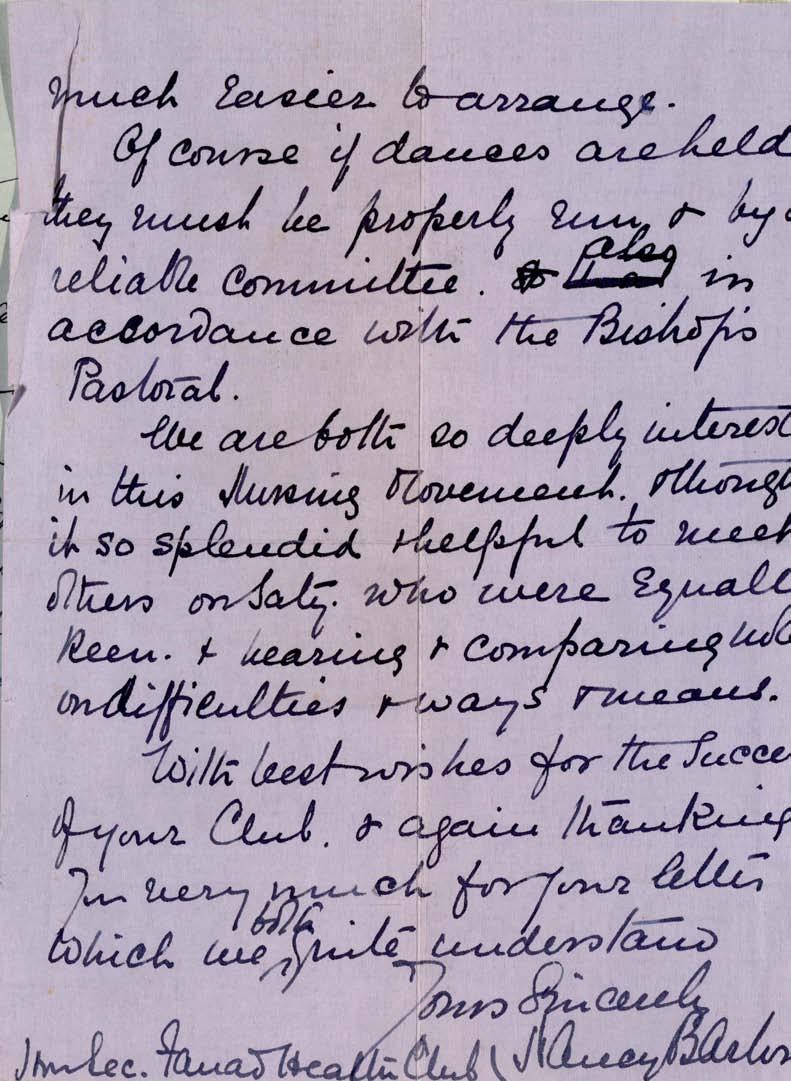 much Easier to arrange.
Of course if dances are held
they must be properly run & by a
reliable Committee. also in
accordance with the Bishop's
Pastoral.
We are both so deeply interest
in this Nursing Movement. & thought
it so splendid & helpful to meet
others on Saty. who were Equall
Keen. & hearing & comparing not
on difficulties & ways & means.
With best wishes for the Succe
of your Club. & again thanking
very much for your letter
which we both quite understand
Yours Sincerely
Hon Sec. Fanad Health Club (Nancy